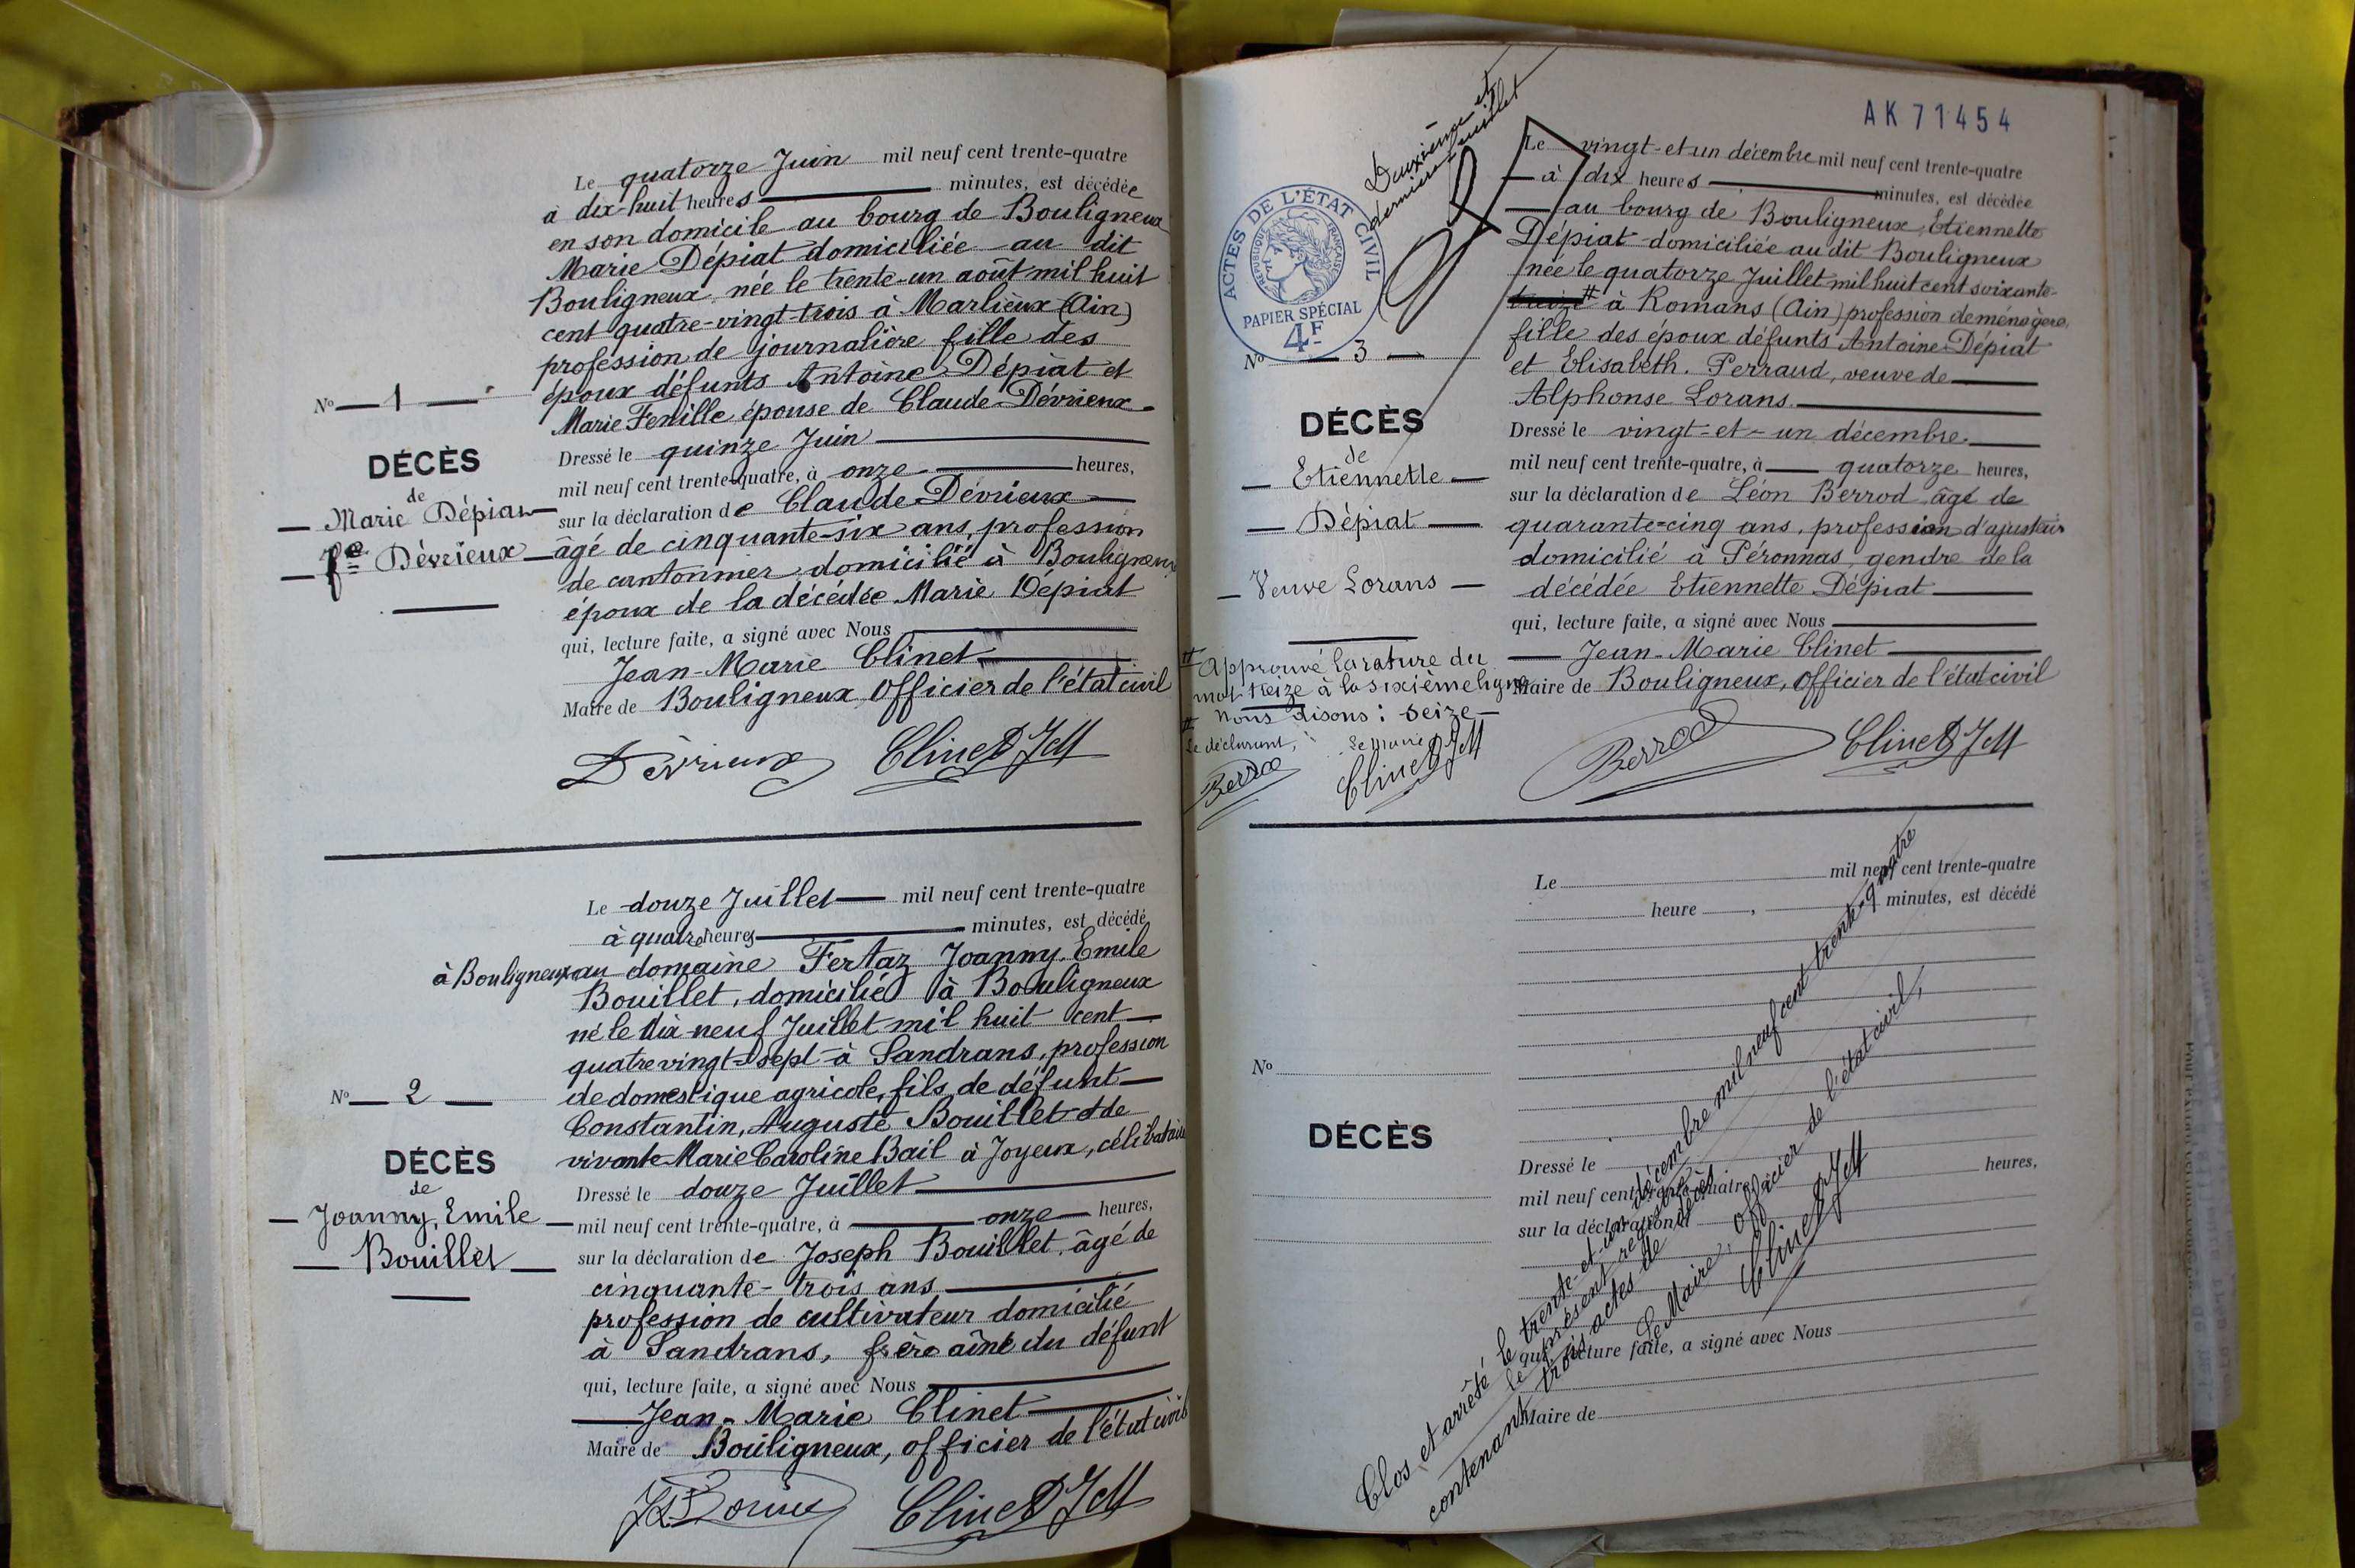 Le quatorze Juin mil neuf cent trente-quatre
à dix-huit heures minutes, est décédée
en son domicile au bourg de Bouligneux
Marie Dépiat domiciliée au dit
Bouligneux née le trente-un août mil huit
cent quatre-vingt-trois à Marlieux (Ain)
profession de journalière fille des
époux défunts Antoine Dépiat et
N° 1
Marie Fenille épouse de Claude Dévrieux
DÉCÈS
de
Marie Dépiat
fe Dévrieux
Dressé le quinze Juin
mil neuf cent trente-quatre, à onze heures,
sur la déclaration de Claude Dévrieux
âgé de cinquante-six ans, profession
de cantonnier domicilié à Bouligneux
époux de la décédée Marie Dépiat
qui, lecture faite, a signé avec Nous
Jean-Marie Clinet
Maire de Bouligneux Officier de l'état civil
Dévrieux Clinet JM
Le douze Juillet mil neuf cent trente-quatre
à quatre heures minutes, est décédé
à Bouligneux au domaine Fertaz Joanny, Emile
Bouillet, domicilié à Bouligneux
né le dix-neuf Juillet mil huit cent
quatre vingt-sept à Sandrans, profession
de domestique agricole, fils de défunt
N° 2
Constantin, Auguste Bouillet et de
vivante Marie Caroline Bail à Joyeux, célibataire
DÉCÈS
de
Joanny, Emile
Bouillet
Dressé le douze Juillet
mil neuf cent trente-quatre, à onze heures,
sur la déclaration de Joseph Bouillet, âgé de
cinquante-trois ans
profession de cultivateur domicilié
à Sandrans, frère aîné du défunt
qui, lecture faite, a signé avec Nous
Jean-Marie Clinet
Maire de Bouligneux, officier de l'état civil
Clinet JM
AK 71454
Deuxième et
dernier feuillet
ACTES DE L'ÉTAT CIVIL
RÉPUBLIQUE FRANÇAISE
PAPIER SPÉCIAL
4F
Le vingt-et-un décembre mil neuf cent trente-quatre
à dix heures minutes, est décédée
au bourg de Bouligneux, Etiennette
Dépiat domiciliée au dit Bouligneux
née le quatorze Juillet mil huit cent soixante-
treize # à Romans (Ain) profession de ménagère
fille des époux défunts Antoine Dépiat
N° 3
et Elisabeth Perraud, veuve de
Alphonse Lorans
DÉCÈS
de
Etiennette
Dépiat
Veuve Lorans
Dressé le vingt-et-un décembre
mil neuf cent trente-quatre, à quatorze heures,
sur la déclaration de Léon Berrod âgé de
quarante-cinq ans, profession d'ajusteur
domicilié à Péronnas, gendre de la
décédée Etiennette Dépiat
qui, lecture faite, a signé avec Nous
Jean-Marie Clinet
Maire de Bouligneux, officier de l'état civil
Berrod Clinet JM
# Approuvé la rature du
mot treize à la sixième ligne
# Nous disons : seize
Le déclarant, Le Maire
Berrod Clinet JM
Le mil neuf cent trente-quatre
heure , minutes, est décédé
N°
DÉCÈS
Dressé le
mil neuf cent trente-quatre, à heures,
sur la déclaration d
qui, lecture faite, a signé avec Nous
Maire de
Clos et arrêté le trente-et-un décembre mil neuf cent trente-quatre
le présent registre
contenant trois actes de décès
Le Maire, officier de l'état civil,
Clinet JM